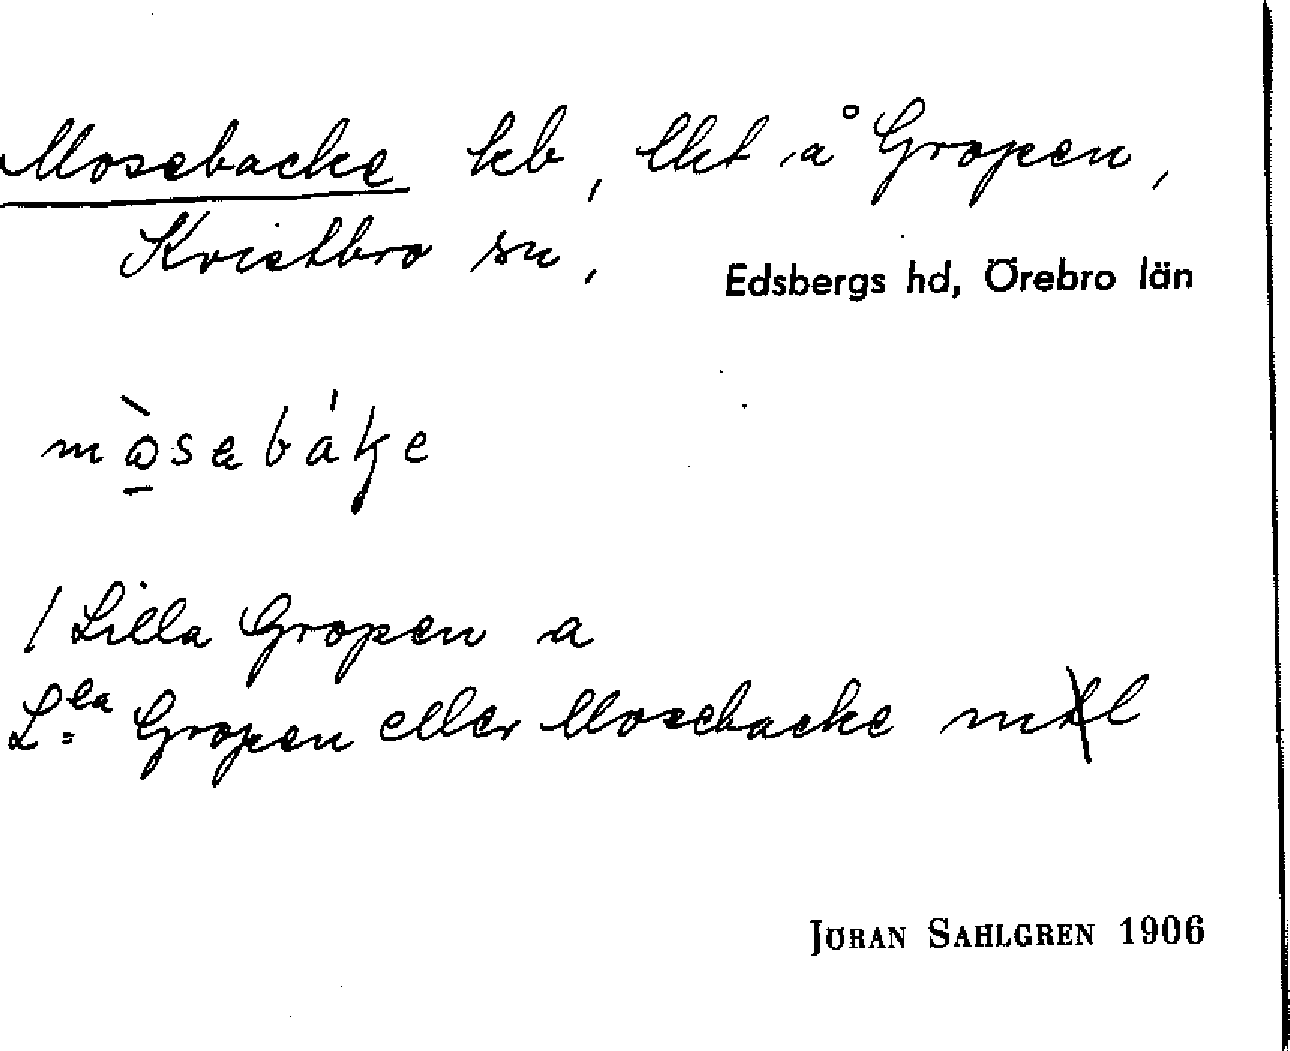 Mosebacke hb, lht å Gropen,
Kvistbro sn, Edsbergs hd, Örebro län
mòsebáke
/ Lilla Gropen a
L:la Gropen eller Mosebacke mtl
JÖRAN SAHLGREN 1906